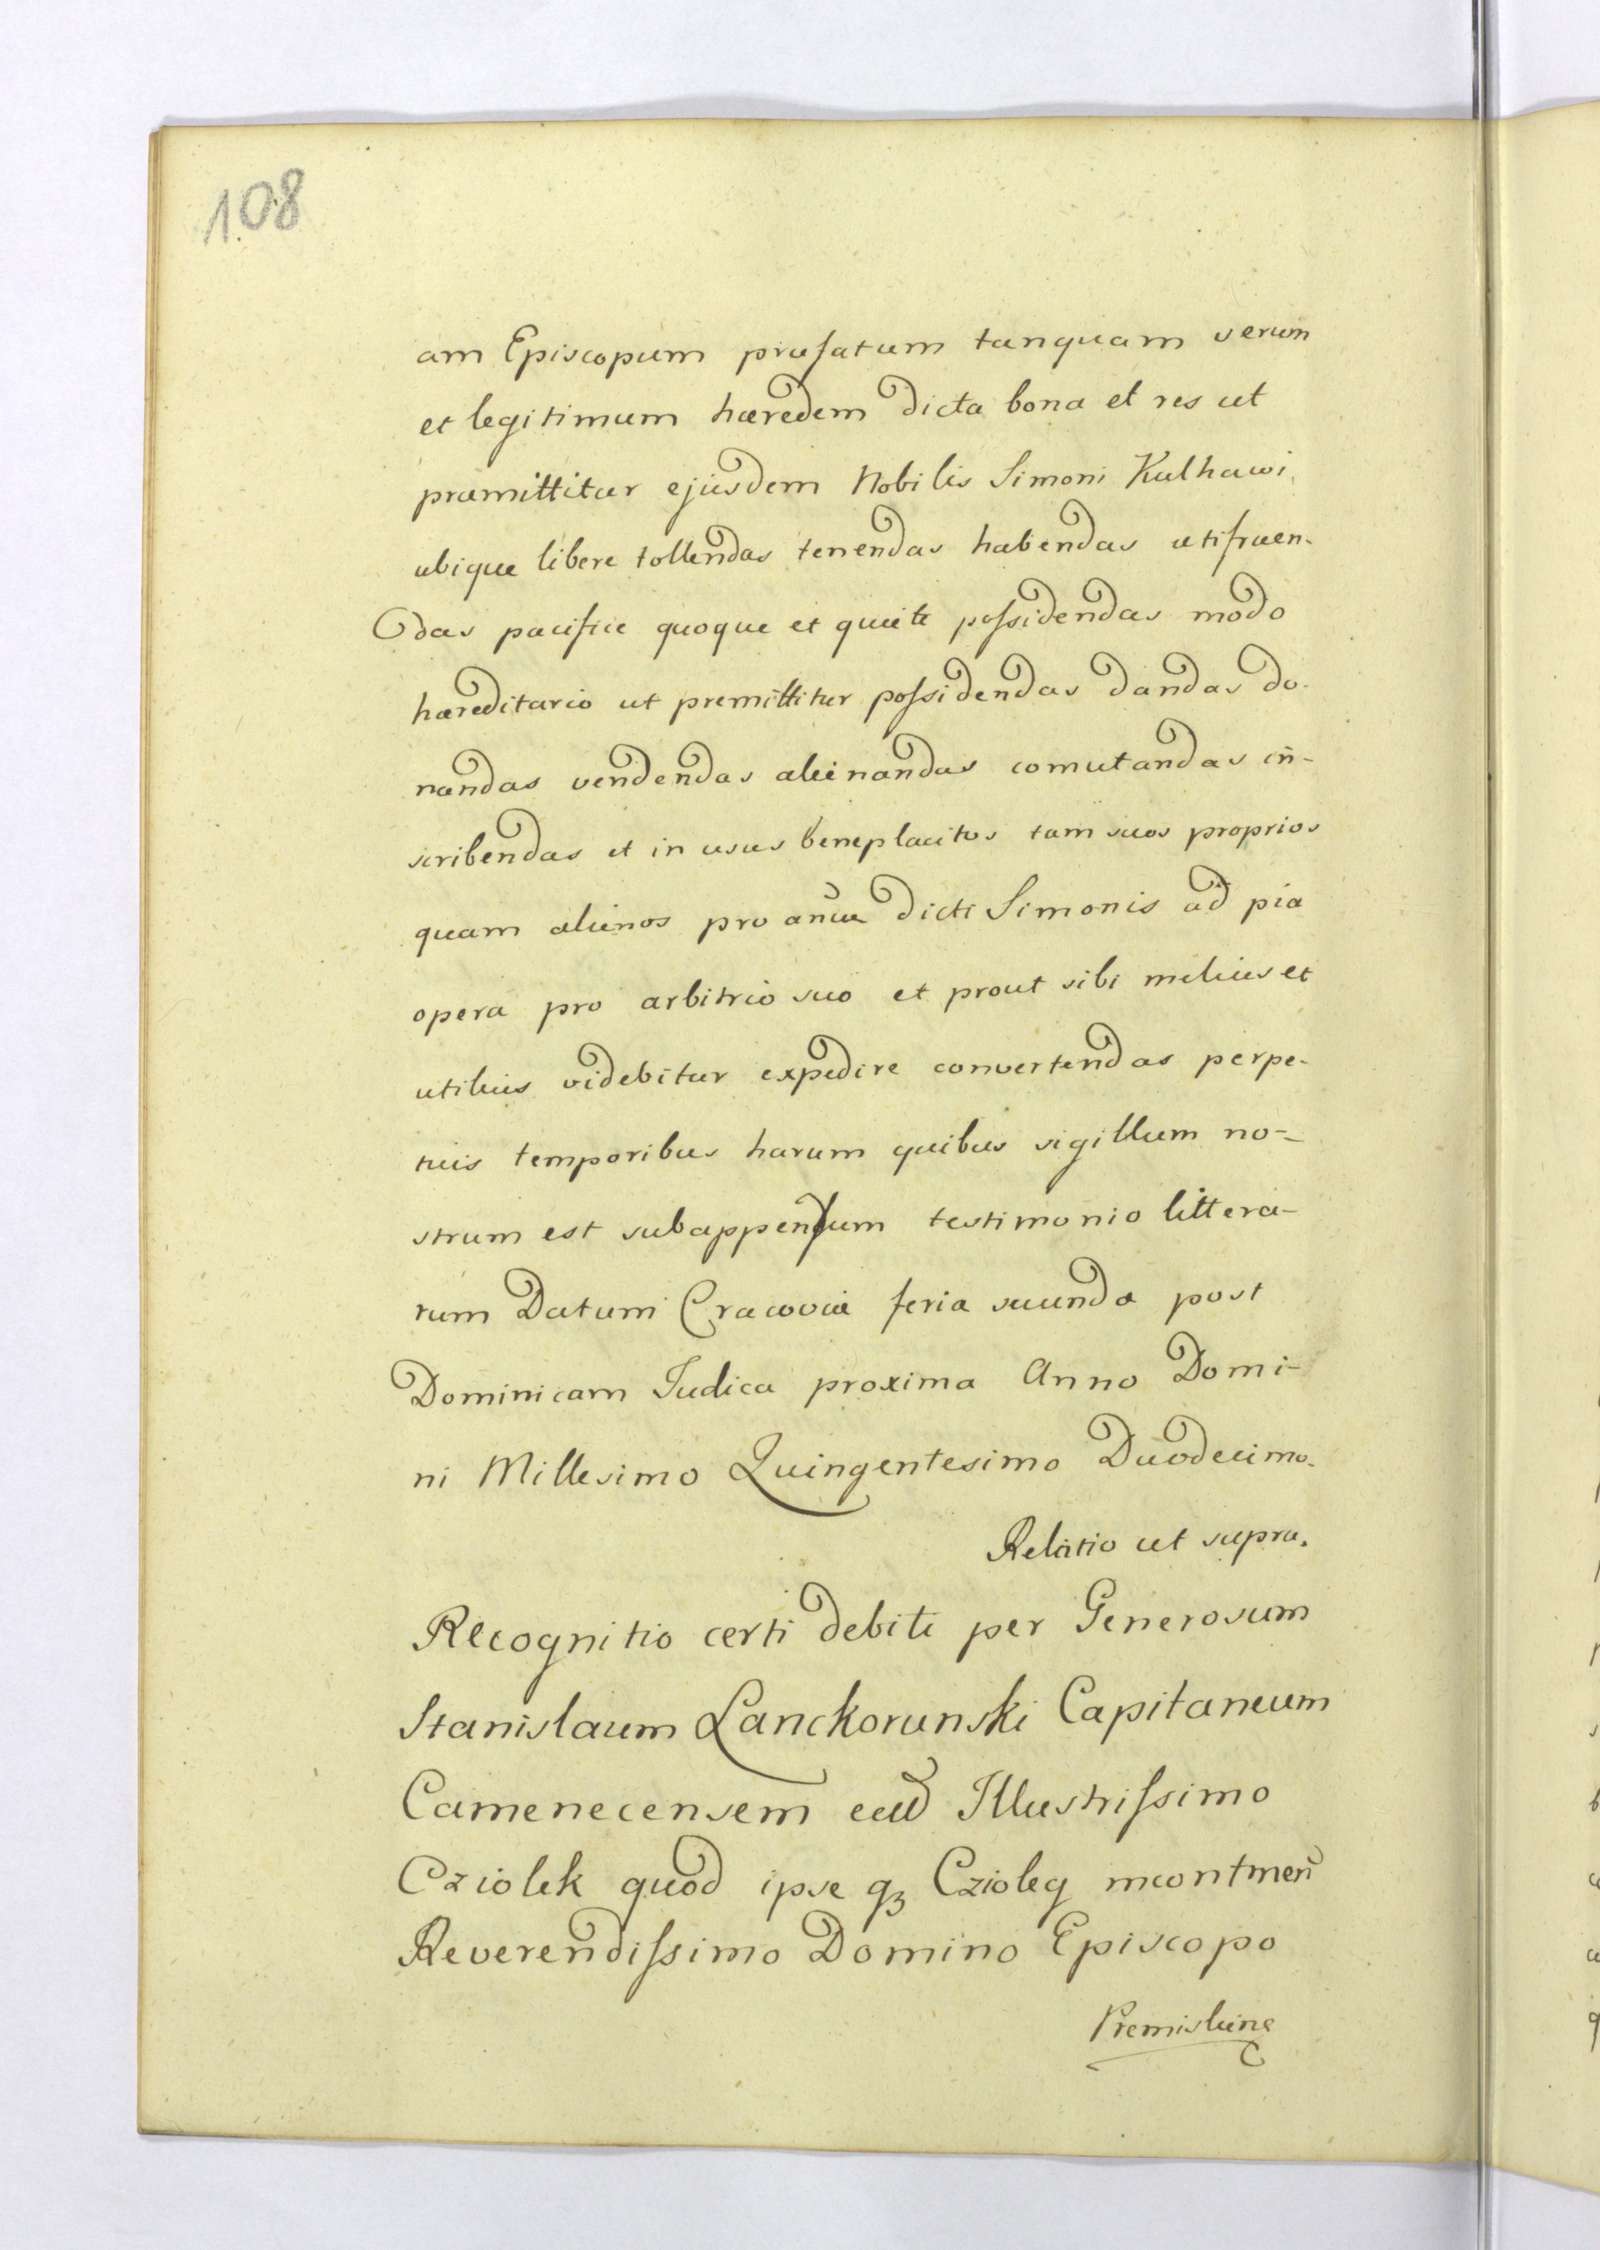 108
am Episcopum præfatum tanquam verum
et legitimum hæredem dicta bona et res ut
præmittitur ejusdem Nobilis Simoni Kulhawi
ubique libere tollendas tenendas habendas utifruen-
das pacifice quoque et quiete possidendas modo
hæreditario ut premittitur possidendas dandas do-
nandas vendendas alienandas comutandas in-
scribendas et in usus beneplacitos tam suos proprios
quam alienos pro dicti Simonis ad pia
opera pro arbitrio suo et prout sibi melius et
utilius videbitur expedire convertendas perpe-
tuis temporibus harum quibus sigillum no-
strum est subappensum testimonio littera-
rum Datum Cracoviæ feria secunda post
Dominicam Judica proxima Anno Domi-
ni Millesimo Quingentesimo Duodecimo.
Relatio ut supra.
Recognitio certi debiti per Generosum
Stanislaum Lanckorunski Capitaneum
Camenecensem Illustrissimo
Cziolek quod ipse qz Czioleg
Reverendissimo Domino Episcopo
Premisliene